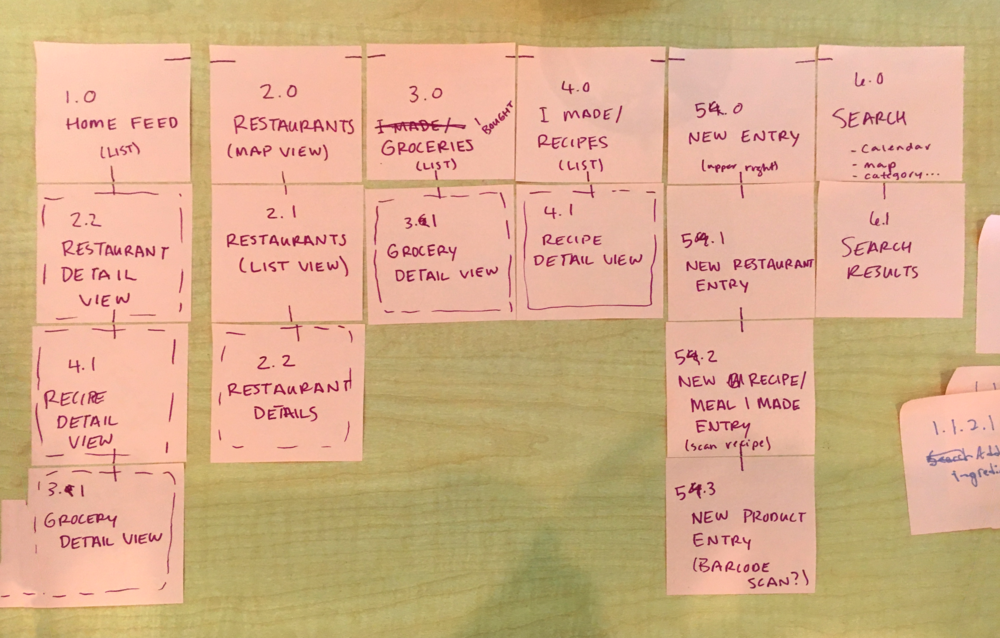 1.0
HOME FEED
(LIST)
2.2
RESTAURANT
DETAIL
VIEW
4.1
RECIPE
DETAIL
VIEW
3.1
GROCERY
DETAIL VIEW
2.0
RESTAURANTS
(MAP VIEW)
2.1
RESTAURANTS
(LIST VIEW)
2.2
RESTAURANT
DETAILS
3.0
I MADE/ I BOUGHT
GROCERIES
(LIST)
3.1
GROCERY
DETAIL VIEW
4.0
I MADE/
RECIPES
(LIST)
4.1
RECIPE
DETAIL VIEW
5.0
NEW ENTRY
(upper right)
5.1
NEW RESTAURANT
ENTRY
5.2
NEW RECIPE/
MEAL I MADE
ENTRY
(scan recipe)
5.3
NEW PRODUCT
ENTRY
(BARCODE
SCAN?)
6.0
SEARCH
- calendar
- map
- category...
6.1
SEARCH
RESULTS
1.1.2.1
Search Add
ingredi